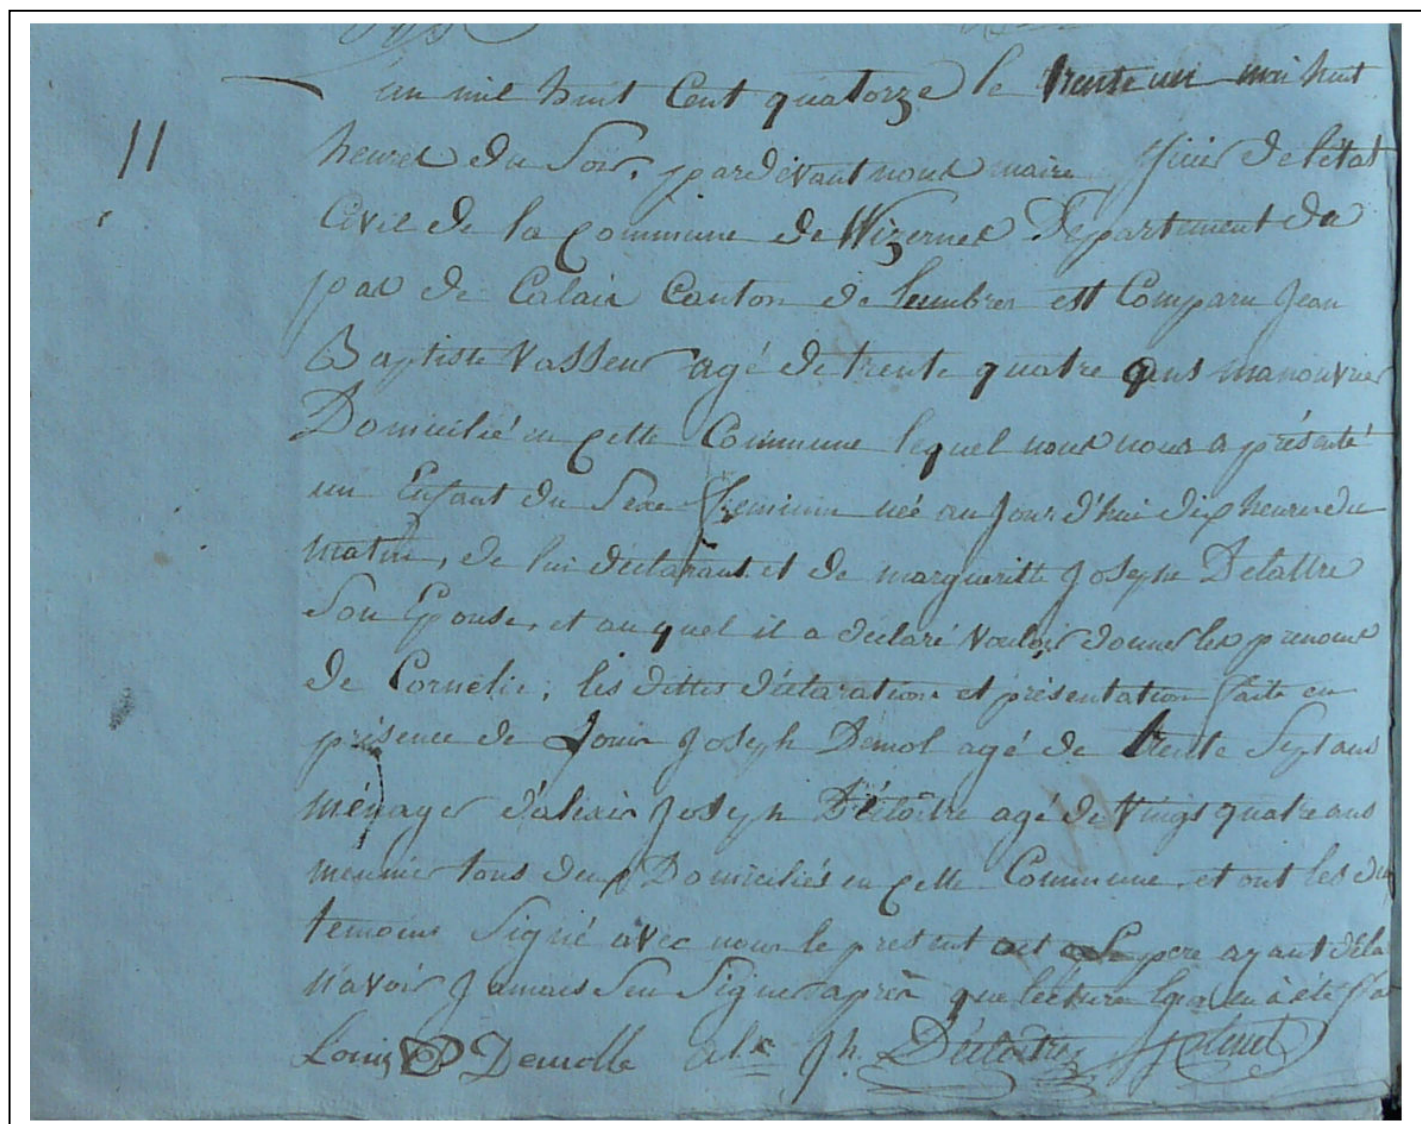 L'an mil huit Cent quatorze le trente un mai huit
11
heures du Soir, pardevant nous maire officier de l'état
Civil de la Commune de Wizernes Département du
pas de Calais Canton de Lumbres est Comparu Jean
Baptiste Vasseur agé de trente quatre ans manouvrier
Domicilié en cette Commune lequel nous nous a présenté
un Enfant du Sexe feminin née au Jour d'hui dix heures du
matin, de lui déclarant et de margueritte Joseph Delattre
Son Epouse, et au quel il a déclaré vouloir donner les prenoms
de Cornelie, les dittes déclaration et présentation faite en
présence de Louis Joseph Demol agé de trente Sept ans
ménager d'alexis Joseph Délattre agé de Vingt quatre ans
meunier tous deux Domiciliés en cette Commune, et ont les dix
temoins Signé avec nous le present act Le pere ayant déla
n'avoir Jamais Seu Signer après que lecture leur en à été fa
Louis Demolle alx Jh. Délattre